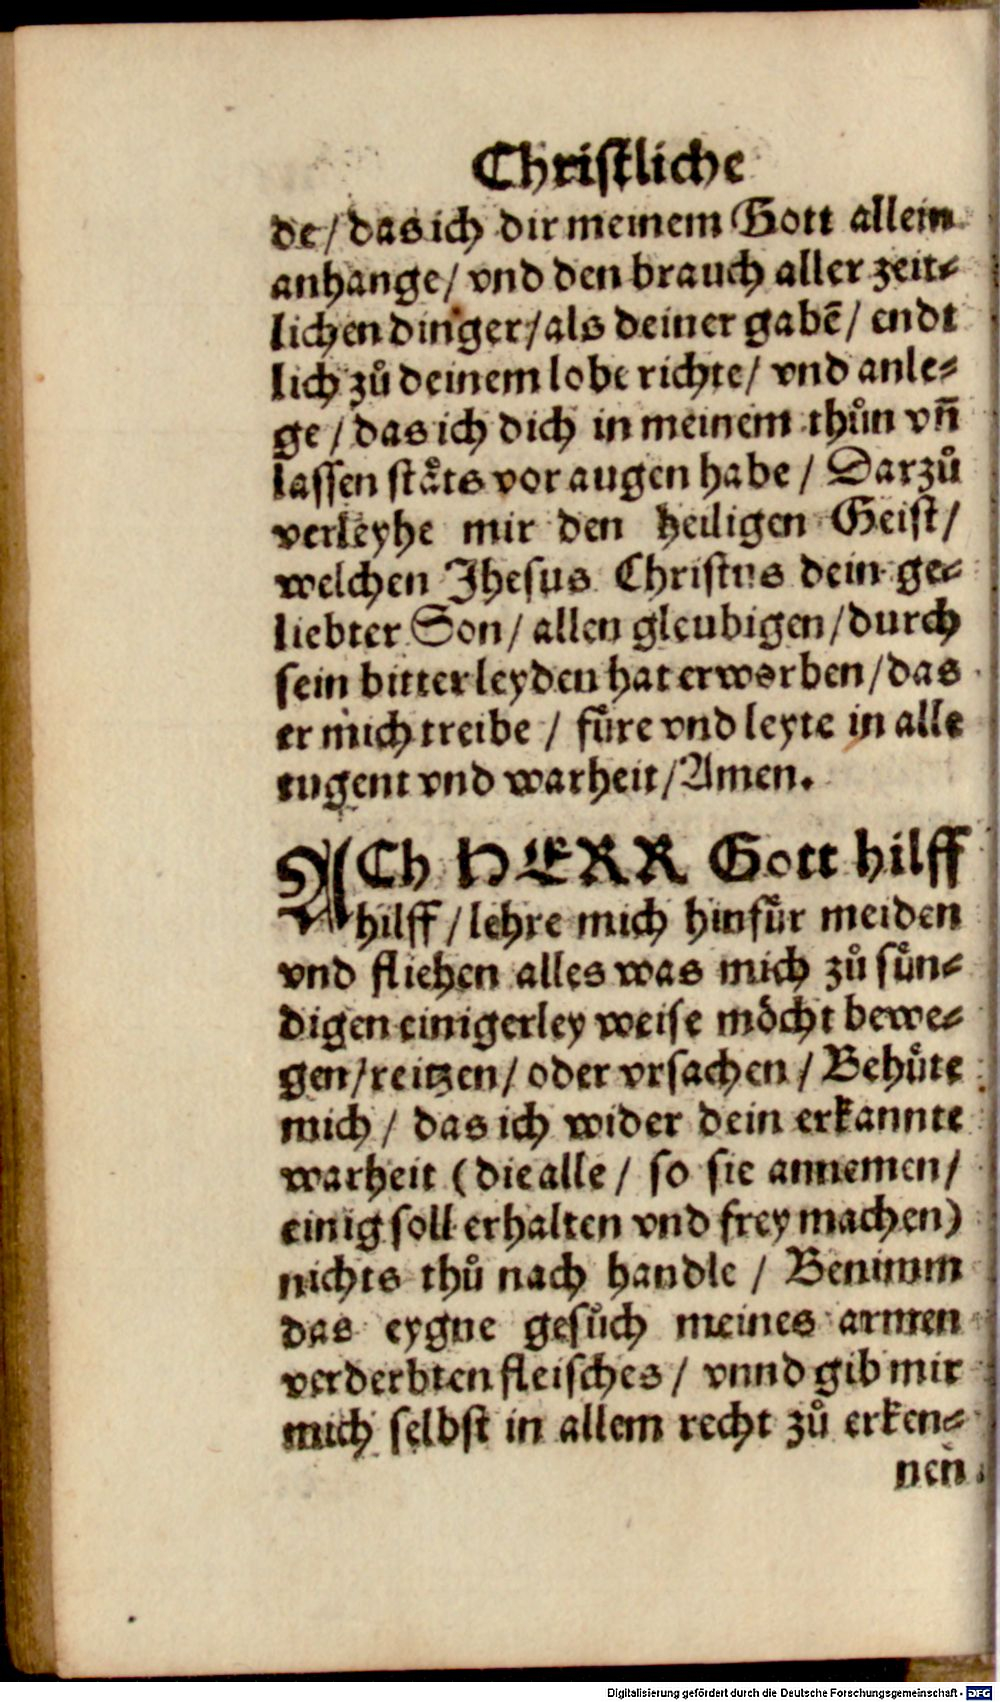 Christliche
de / das ich dir meinem Gott allein
anhange / vnd den brauch aller zeit⸗
lichen dinger / als deiner gabẽ / endt
lich zů deinem lobe richte / vnd anle⸗
ge / das ich dich in meinem thůn vñ
lassen stäts vor augen habe / Darzů
verleyhe mir den heiligen Geist /
welchen Jhesus Christus dein ge⸗
liebter Son / allen gleubigen / durch
sein bitter leyden hat erworben / das
er mich treibe / füre vnd leyte in alle
tugent vnd warheit / Amen.
ACh HERR Gott hilff
hilff / lehre mich hinfür meiden
vnd fliehen alles was mich zů sün⸗
digen einigerley weise möcht bewe⸗
gen / reitzen / oder vrsachen / Behüte
mich / das ich wider dein erkannte
warheit (die alle / so sie annemen /
einig soll erhalten vnd frey machen)
nichts thů nach handle / Benimm
das eygne gesůch meines armen
verderbten fleisches / vnnd gib mir
mich selbst in allem recht zů erken⸗
nen
Digitalisierung gefördert durch die Deutsche Forschungsgemeinschaft - DFG